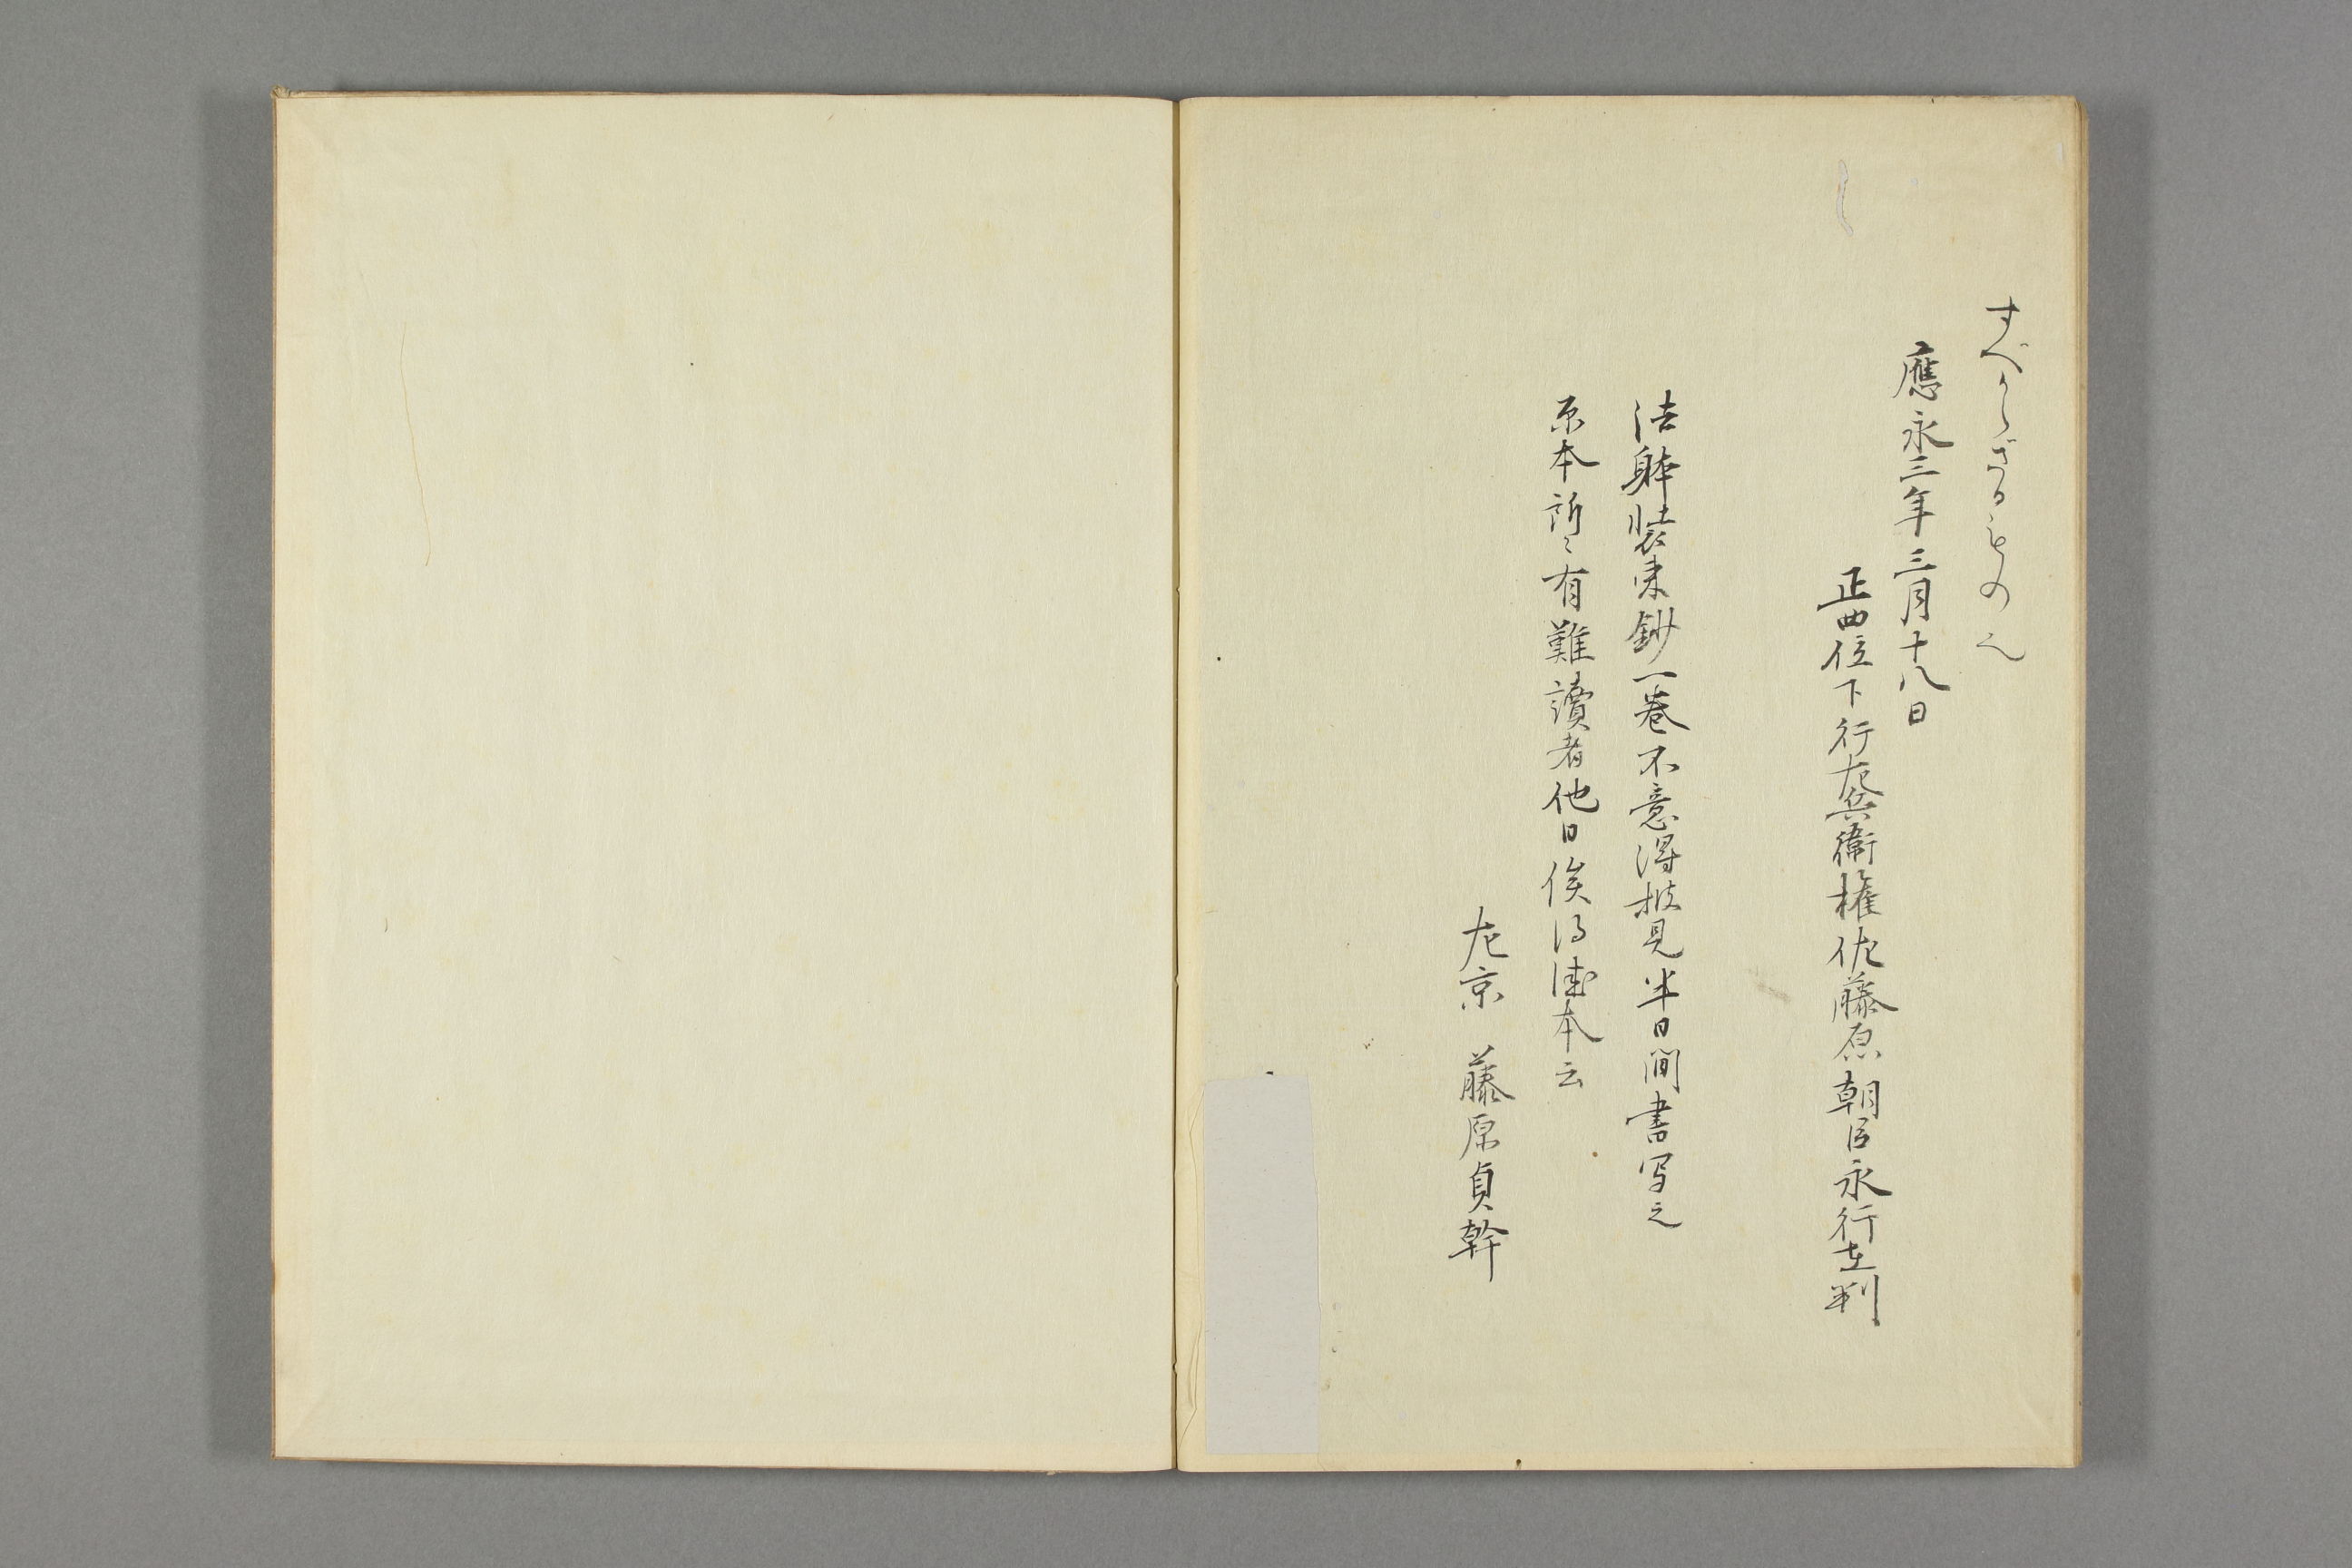 すべからざるものへ
應永三年三月十八日
正四位下行左兵衛権佐藤原朝臣永行在判
法躰装束鈔一巻不意得披見半日間書写之
原本所〻有難讀者他日俟得佳本云
左京 藤原貞幹